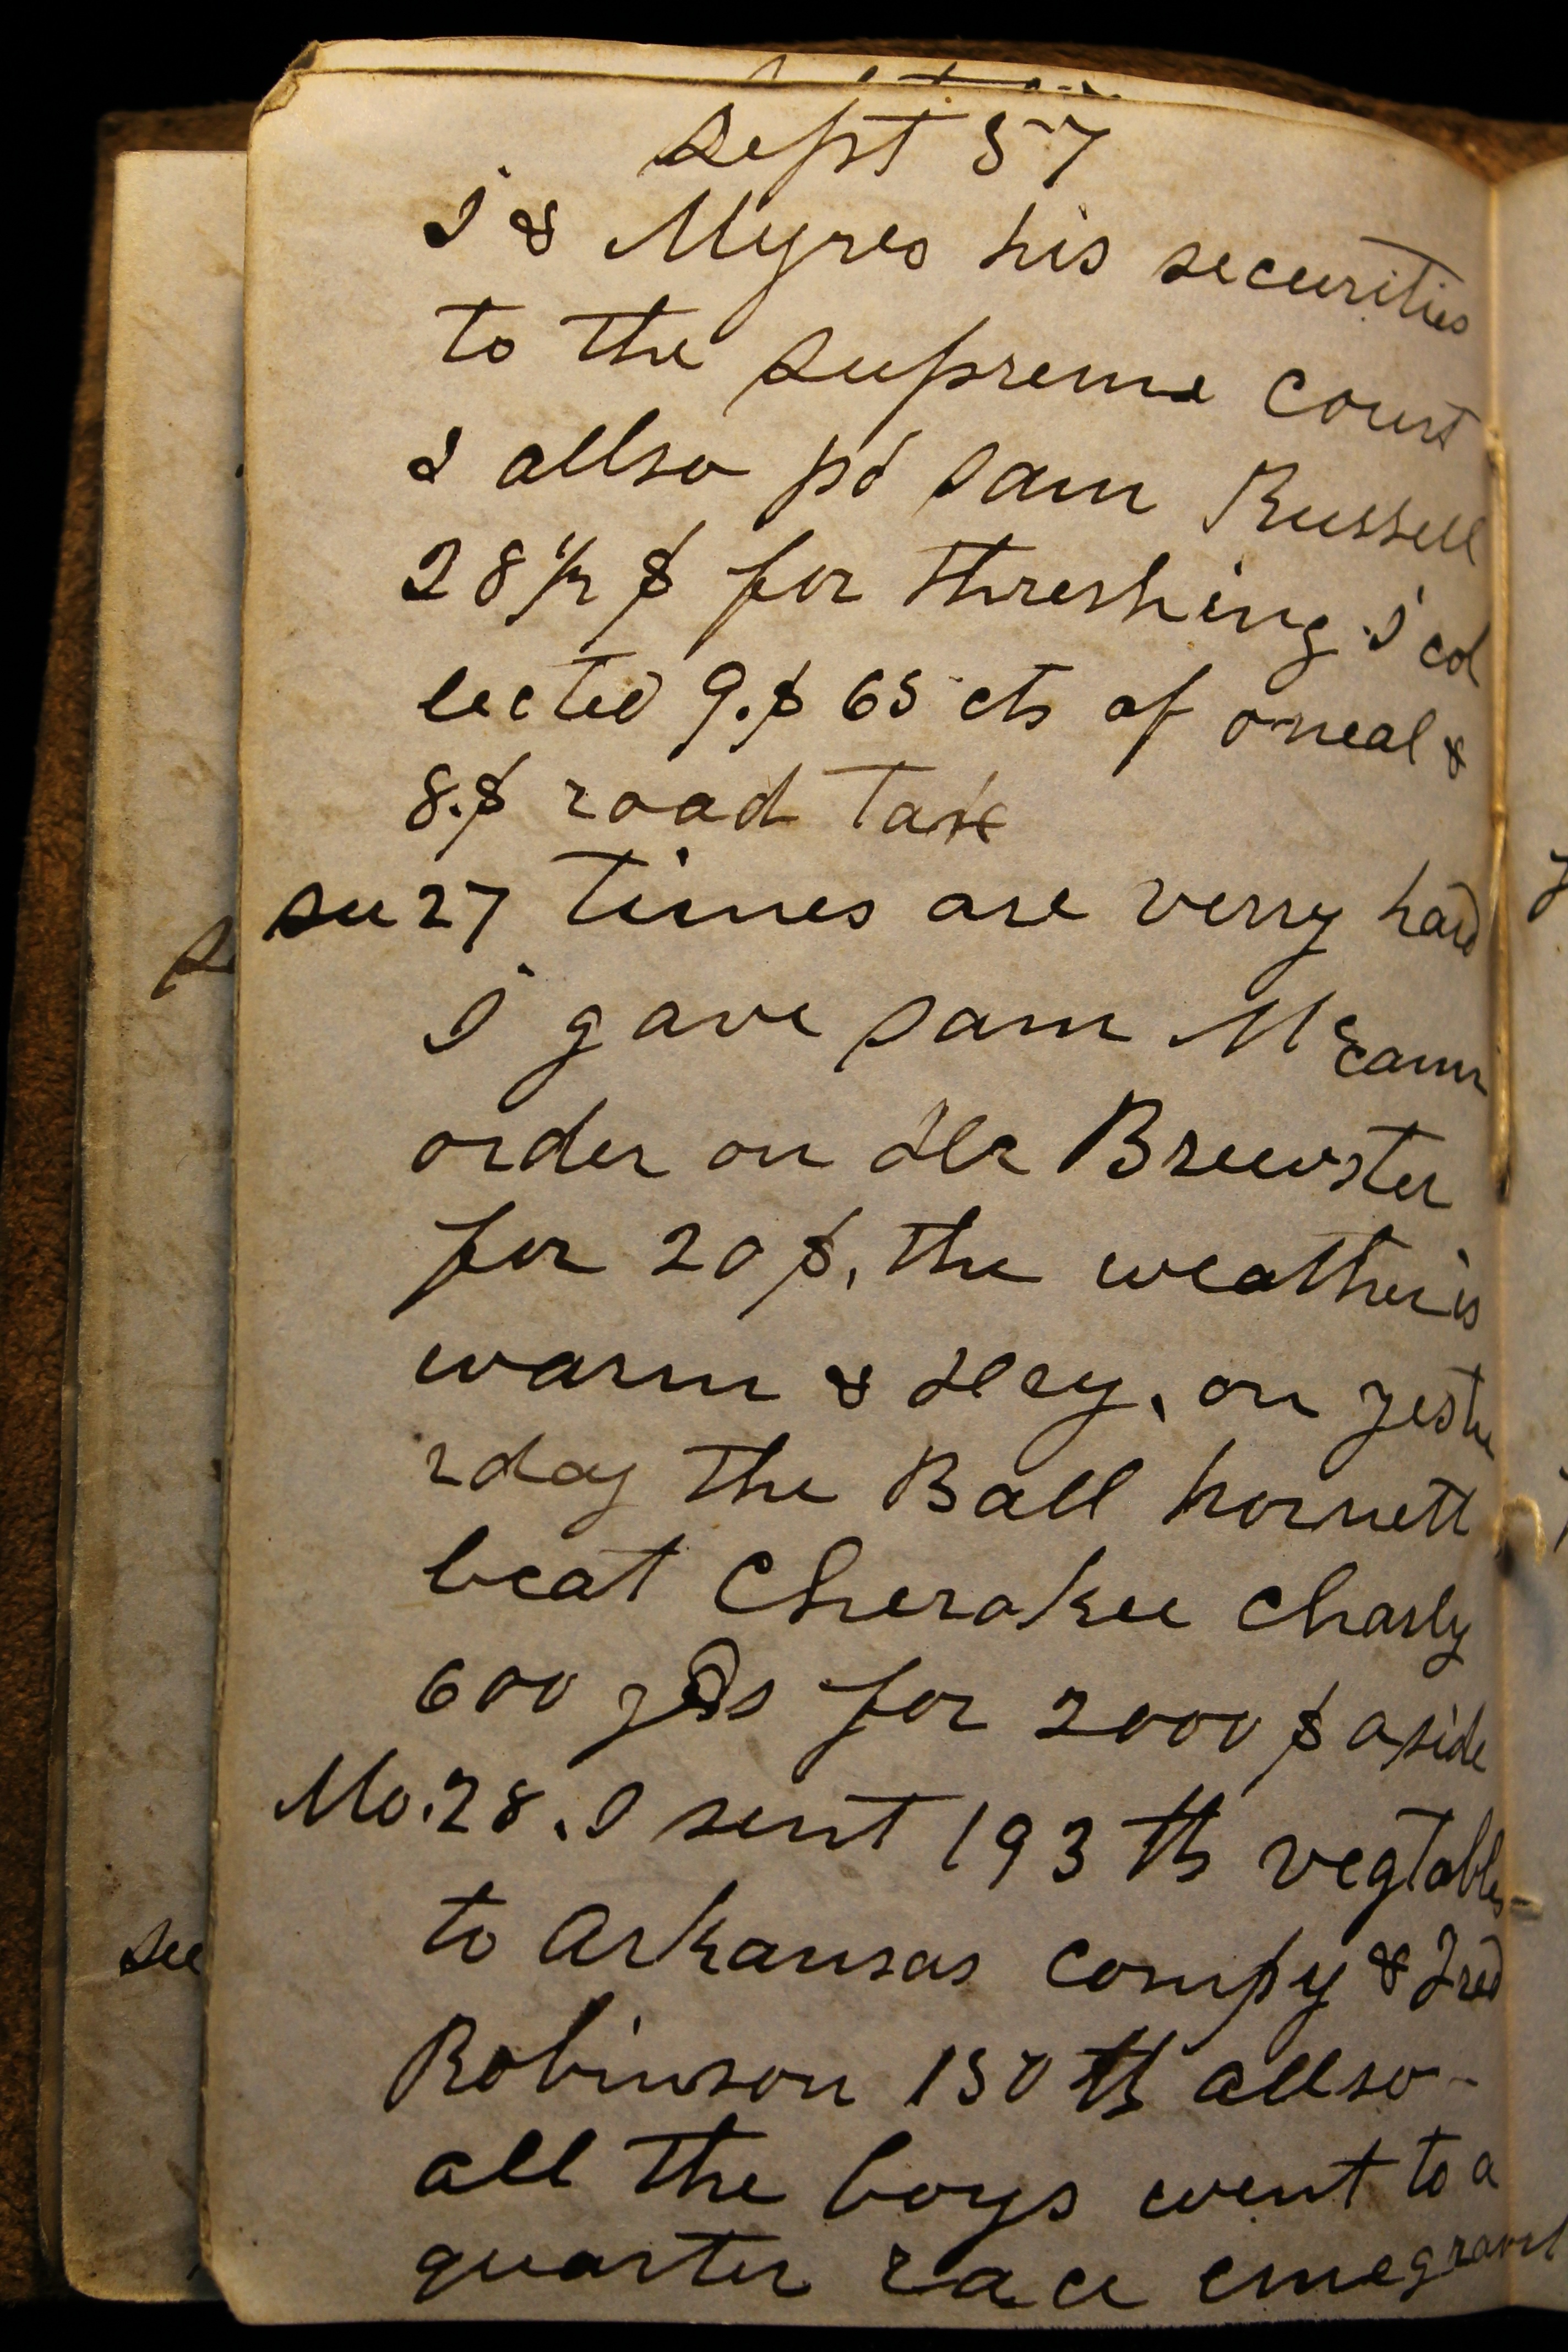 Sept 57
I & Myres his securities
to the Supreme court
I allso pd Sam Russell
28 1/2 $ for threshing I col
lected 9.$ 65 cts of oneal &
8.$ road tax
Su 27 times are verry hard
I gave Sam McCann
order on Dr Brewster
for 20 $, the weather is
warm & dry, on yeste
rday the Ball hornett
beat Cherokee Charly
600 yds for 2000 $ aside
Mo. 28. I sent 193 lb vegtables
to Arkansas compy & Fred
Robinson 150 lb allso -
all the boys went to a
quarter race emegrant
Su